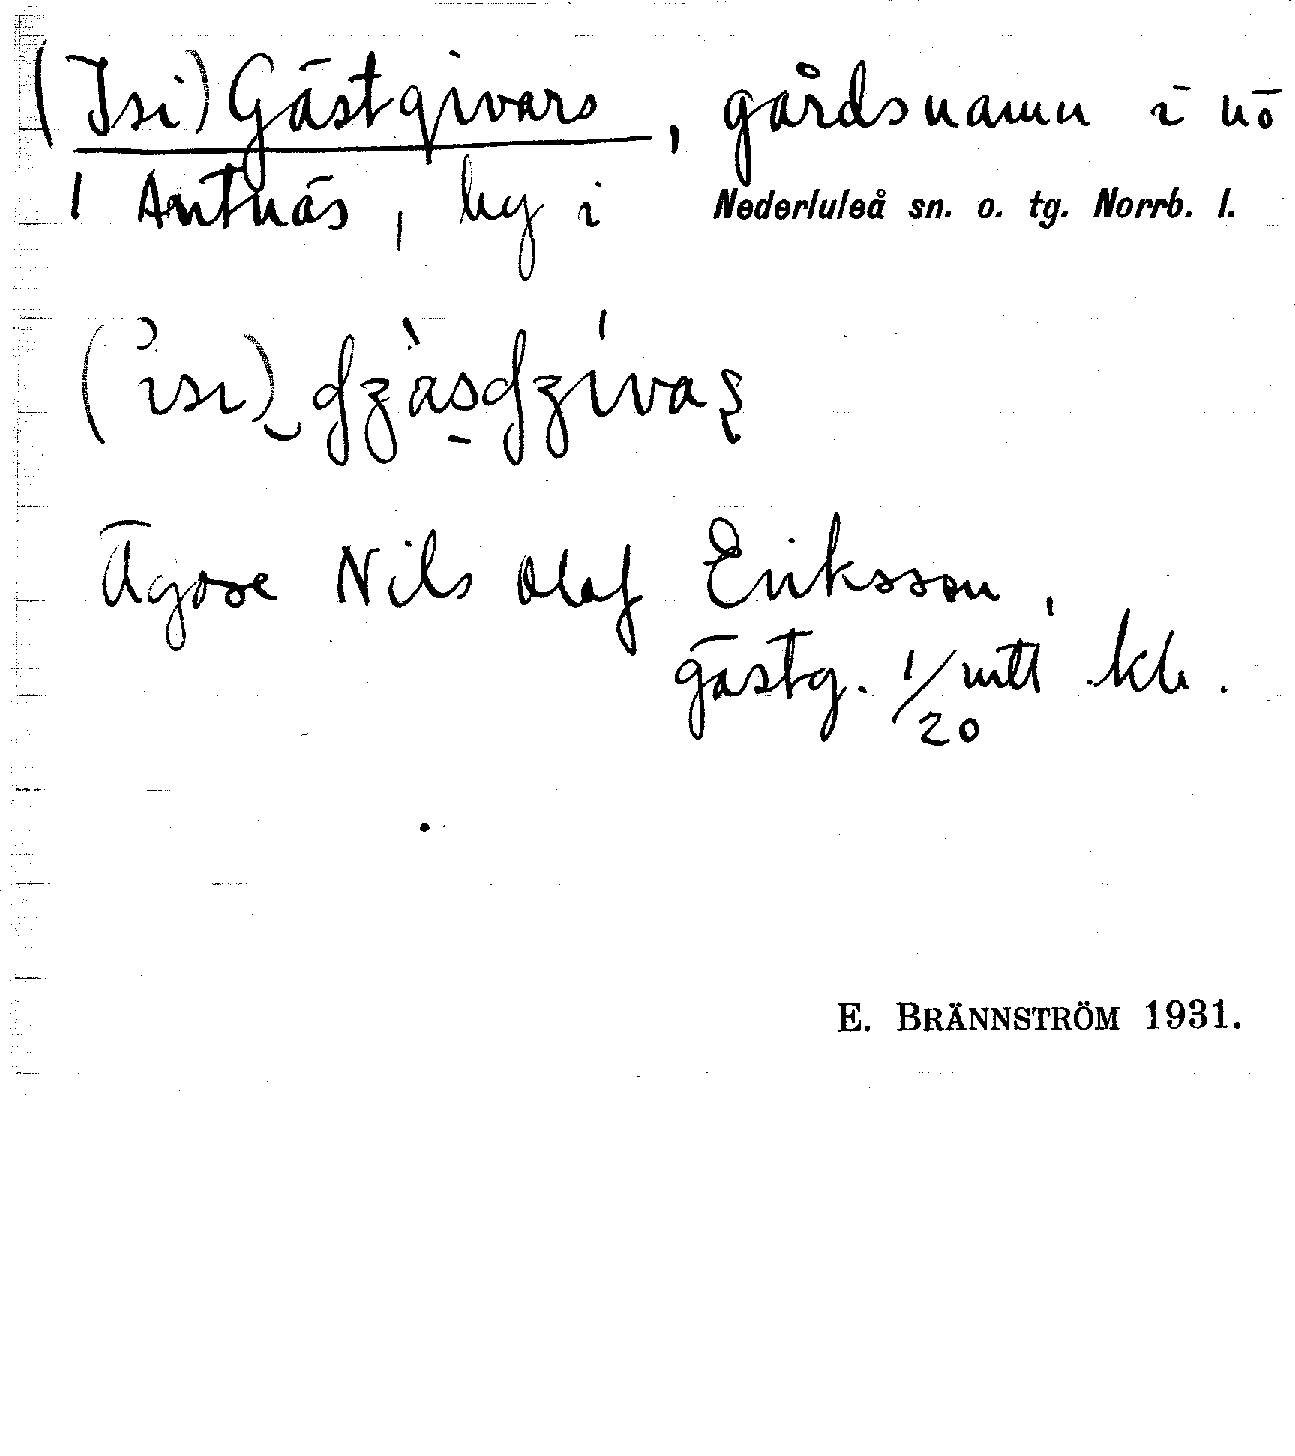 (Isi) Gästgivars, gårdsnamn i nö
i Antnäs, by i Nederluleå sn. o. tg. Norrb. l.
Ägare Nils Olof Eriksson,
gästg. 1/20 mtl kh.
E. BRÄNNSTRÖM 1931.